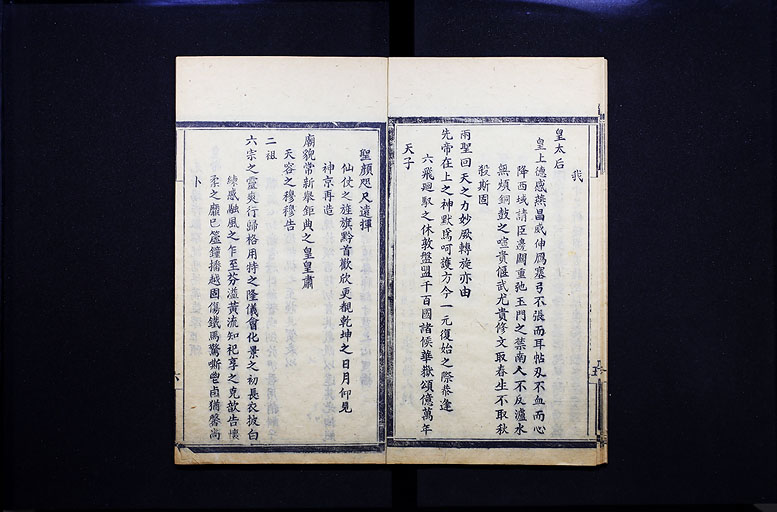 我
皇太后
皇上德感燠昌威伸鴈塞弓不張而耳帖刃不血而心
降西域請臣邊關重弛玉門之禁南人不反瀘水
無煩銅鼓之喧貴偃武尤貴修文取春生不取秋
殺斯固
兩聖回天之力妙厥轉旋亦由
先帝在上之神默爲呵護方今一元復始之際恭逢
六飛廻馭之休敦盤盟千百國諸侯華嶽頌億萬年
天子
聖顏咫尺遠揮
仙仗之旌旗黔首歡欣更覩乾坤之日月仰見
神京再造
廟貌常新舉鉅典之皇皇肅
天容之穆穆告
二祖
六宗之靈爽行歸格用特之隆儀會化景之初長衣披白
練感融風之乍至芬溢黃流知祀享之克歆告懷
柔之靡已簴鐘播越固傷鐵馬驚嘶鬯卣猶馨尚
卜